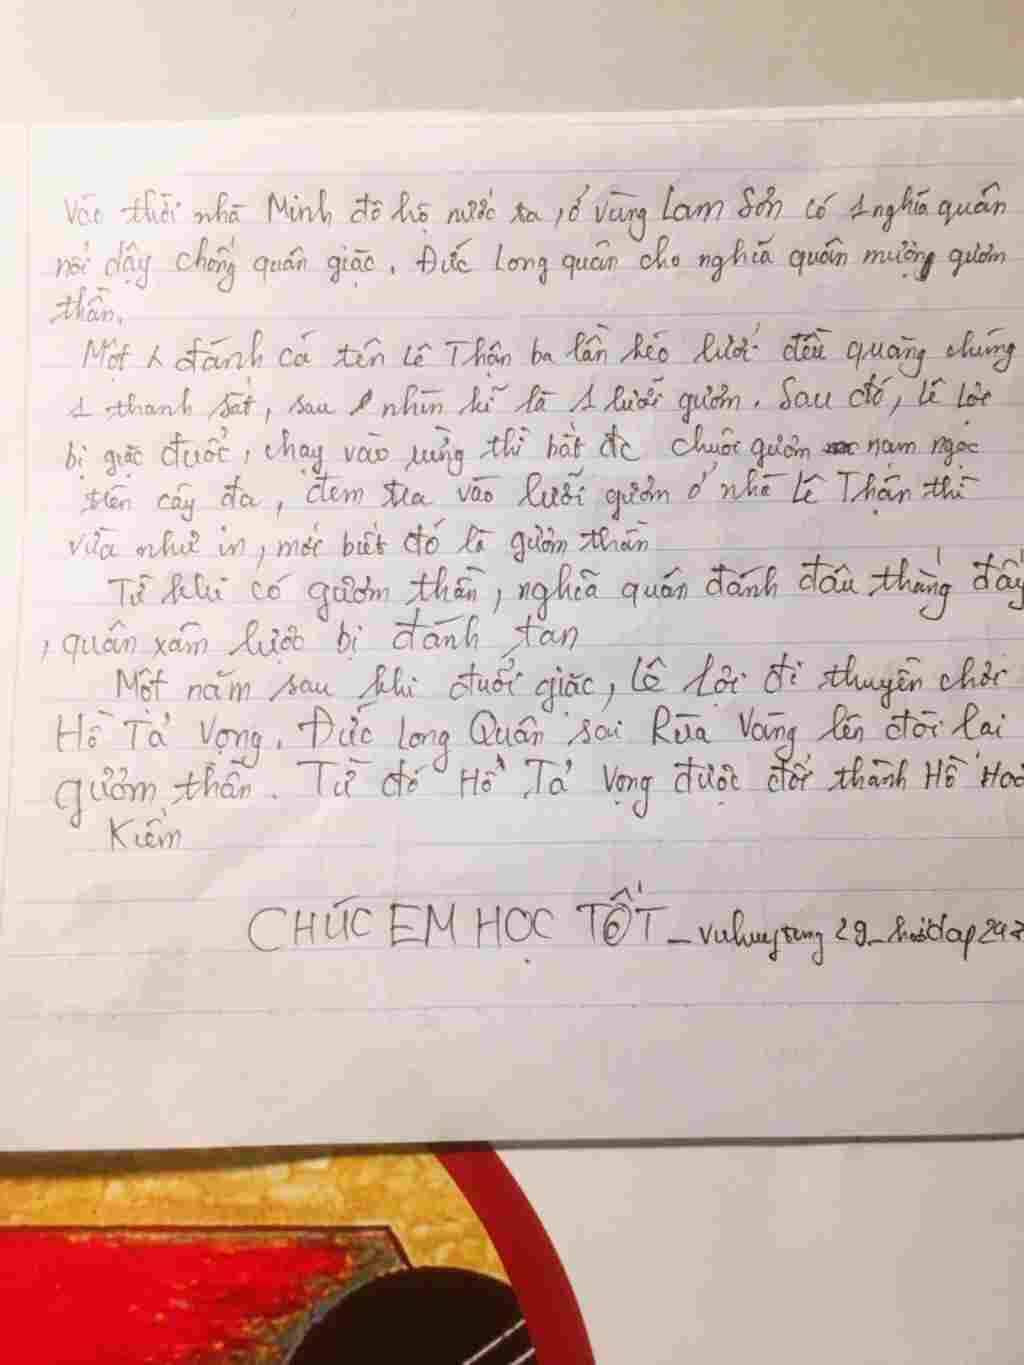 Vào thời nhà Minh đô hộ nước ta, ở vùng Lam Sơn có 1 nghĩa quân
nổi dậy chống quân giặc. Đức Long quân cho nghĩa quân mượn gươm
thần.
Một đánh cá tên Lê Thận ba lần kéo lưới đều quăng chúng
1 thanh sắt, sau nhìn kĩ là 1 lưỡi gươm. Sau đó, Lê Lợi
bị giặc đuổi, chạy vào rừng thì bắt đc chuôi gươm nạm ngọc
trên cây đa, đem tra vào lưỡi gươm ở nhà Lê Thận thì
vừa như in, mới biết đó là gươm thần
Từ khi có gươm thần, nghĩa quân đánh đâu thắng đấy
, quân xâm lược bị đánh tan
Một năm sau khi đuổi giặc, Lê Lợi đi thuyền chơi
Hồ Tả Vọng. Đức Long Quân sai Rùa Vàng lên đòi lại
gươm thần. Từ đó Hồ Tả Vọng được đổi thành Hồ Hoà
Kiếm
CHÚC EM HỌC TỐT _ vuhuytung 29 _ hoidap 247